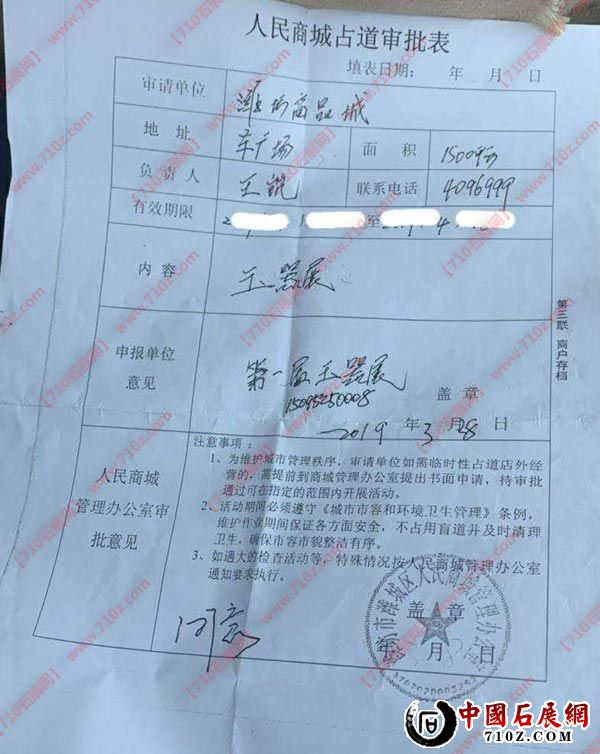 人民商城占道审批表
填表日期： 年 月 日
审请单位 潍坊商品城
地址 东广场 面积 1500平
负责人 王凯 联系电话 4096999
有效期限 至
内容 玉器展
申报单位意见 第一届玉器展
15095250008 盖章
2019 年 3 月 28 日
第三联 商户存档
人民商城
管理办公室审
批意见
注意事项：
1、为维护城市管理秩序，审请单位如需临时性占道店外经
营的，需提前到商城管理办公室提出书面申请，待审批
通过可在指定的范围内开展活动。
2、活动期间必须遵守《城市市容和环境卫生管理》条例，
维护作业期间保证各方面安全，不占用盲道并及时清理
卫生，确保市容市貌整洁有序。
3、如遇大的检查活动等，特殊情况按人民商城管理办公室
通知要求执行。
同意
盖章
年 月 日
市潍城区人民商城管理办公
【710石展网】www.710z.com
中國石展網
710z.com